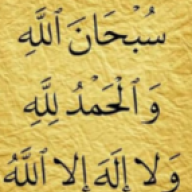 سُبْحَانَ ٱللَّهِ
وَٱلْحَمْدُ لِلَّهِ
وَلَا إِلَهَ إِلَّا ٱللَّهُ